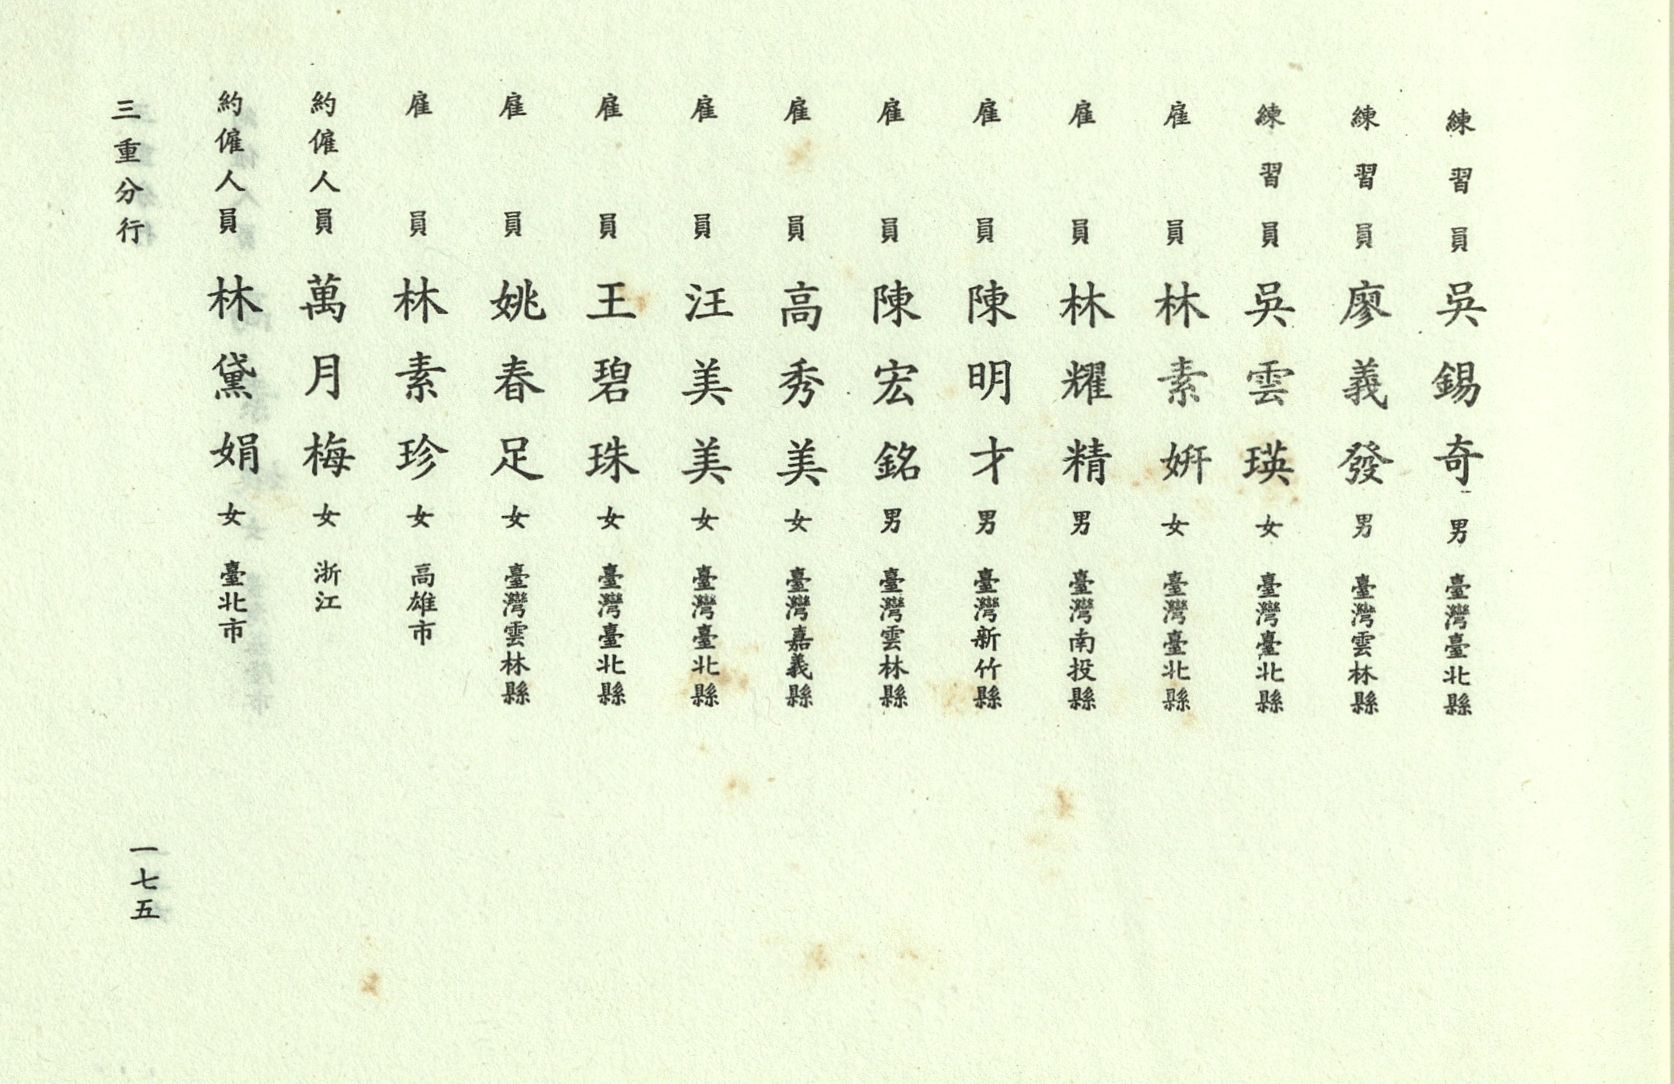 練習員 吳錫奇 男 臺灣臺北縣
練習員 廖義發 男 臺灣雲林縣
練習員 吳雲瑛 女 臺灣臺北縣
雇員 林素姸 女 臺灣臺北縣
雇員 林耀精 男 臺灣南投縣
雇員 陳明才 男 臺灣新竹縣
雇員 陳宏銘 男 臺灣雲林縣
雇員 高秀美 女 臺灣嘉義縣
雇員 汪美美 女 臺灣臺北縣
雇員 王碧珠 女 臺灣臺北縣
雇員 姚春足 女 臺灣雲林縣
雇員 林素珍 女 高雄市
約僱人員 萬月梅 女 浙江
約僱人員 林黛娟 女 臺北市
三重分行
一七五